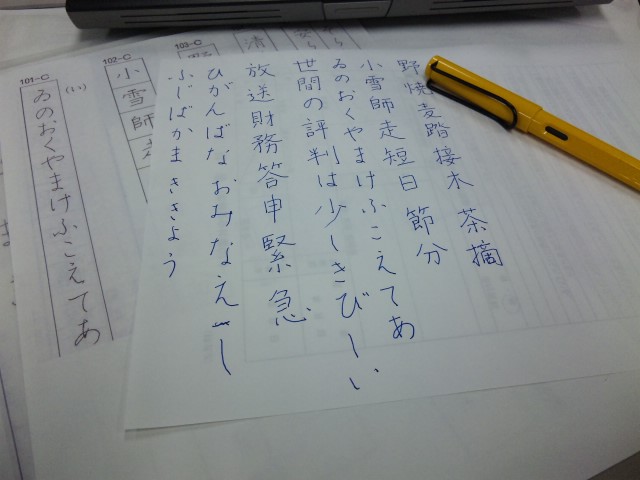 野焼麦踏接木 茶摘
小雪師走短日 節分
ゐのおくやまけふこえてあ
世間の評判は少しきびしい
放送財務答申緊急
ひがんばなおみなえし
ふじばかまききょう
清
103-C
102-C
小雪師走
101-C
(い)
ゐのおくやまけふこえてあ